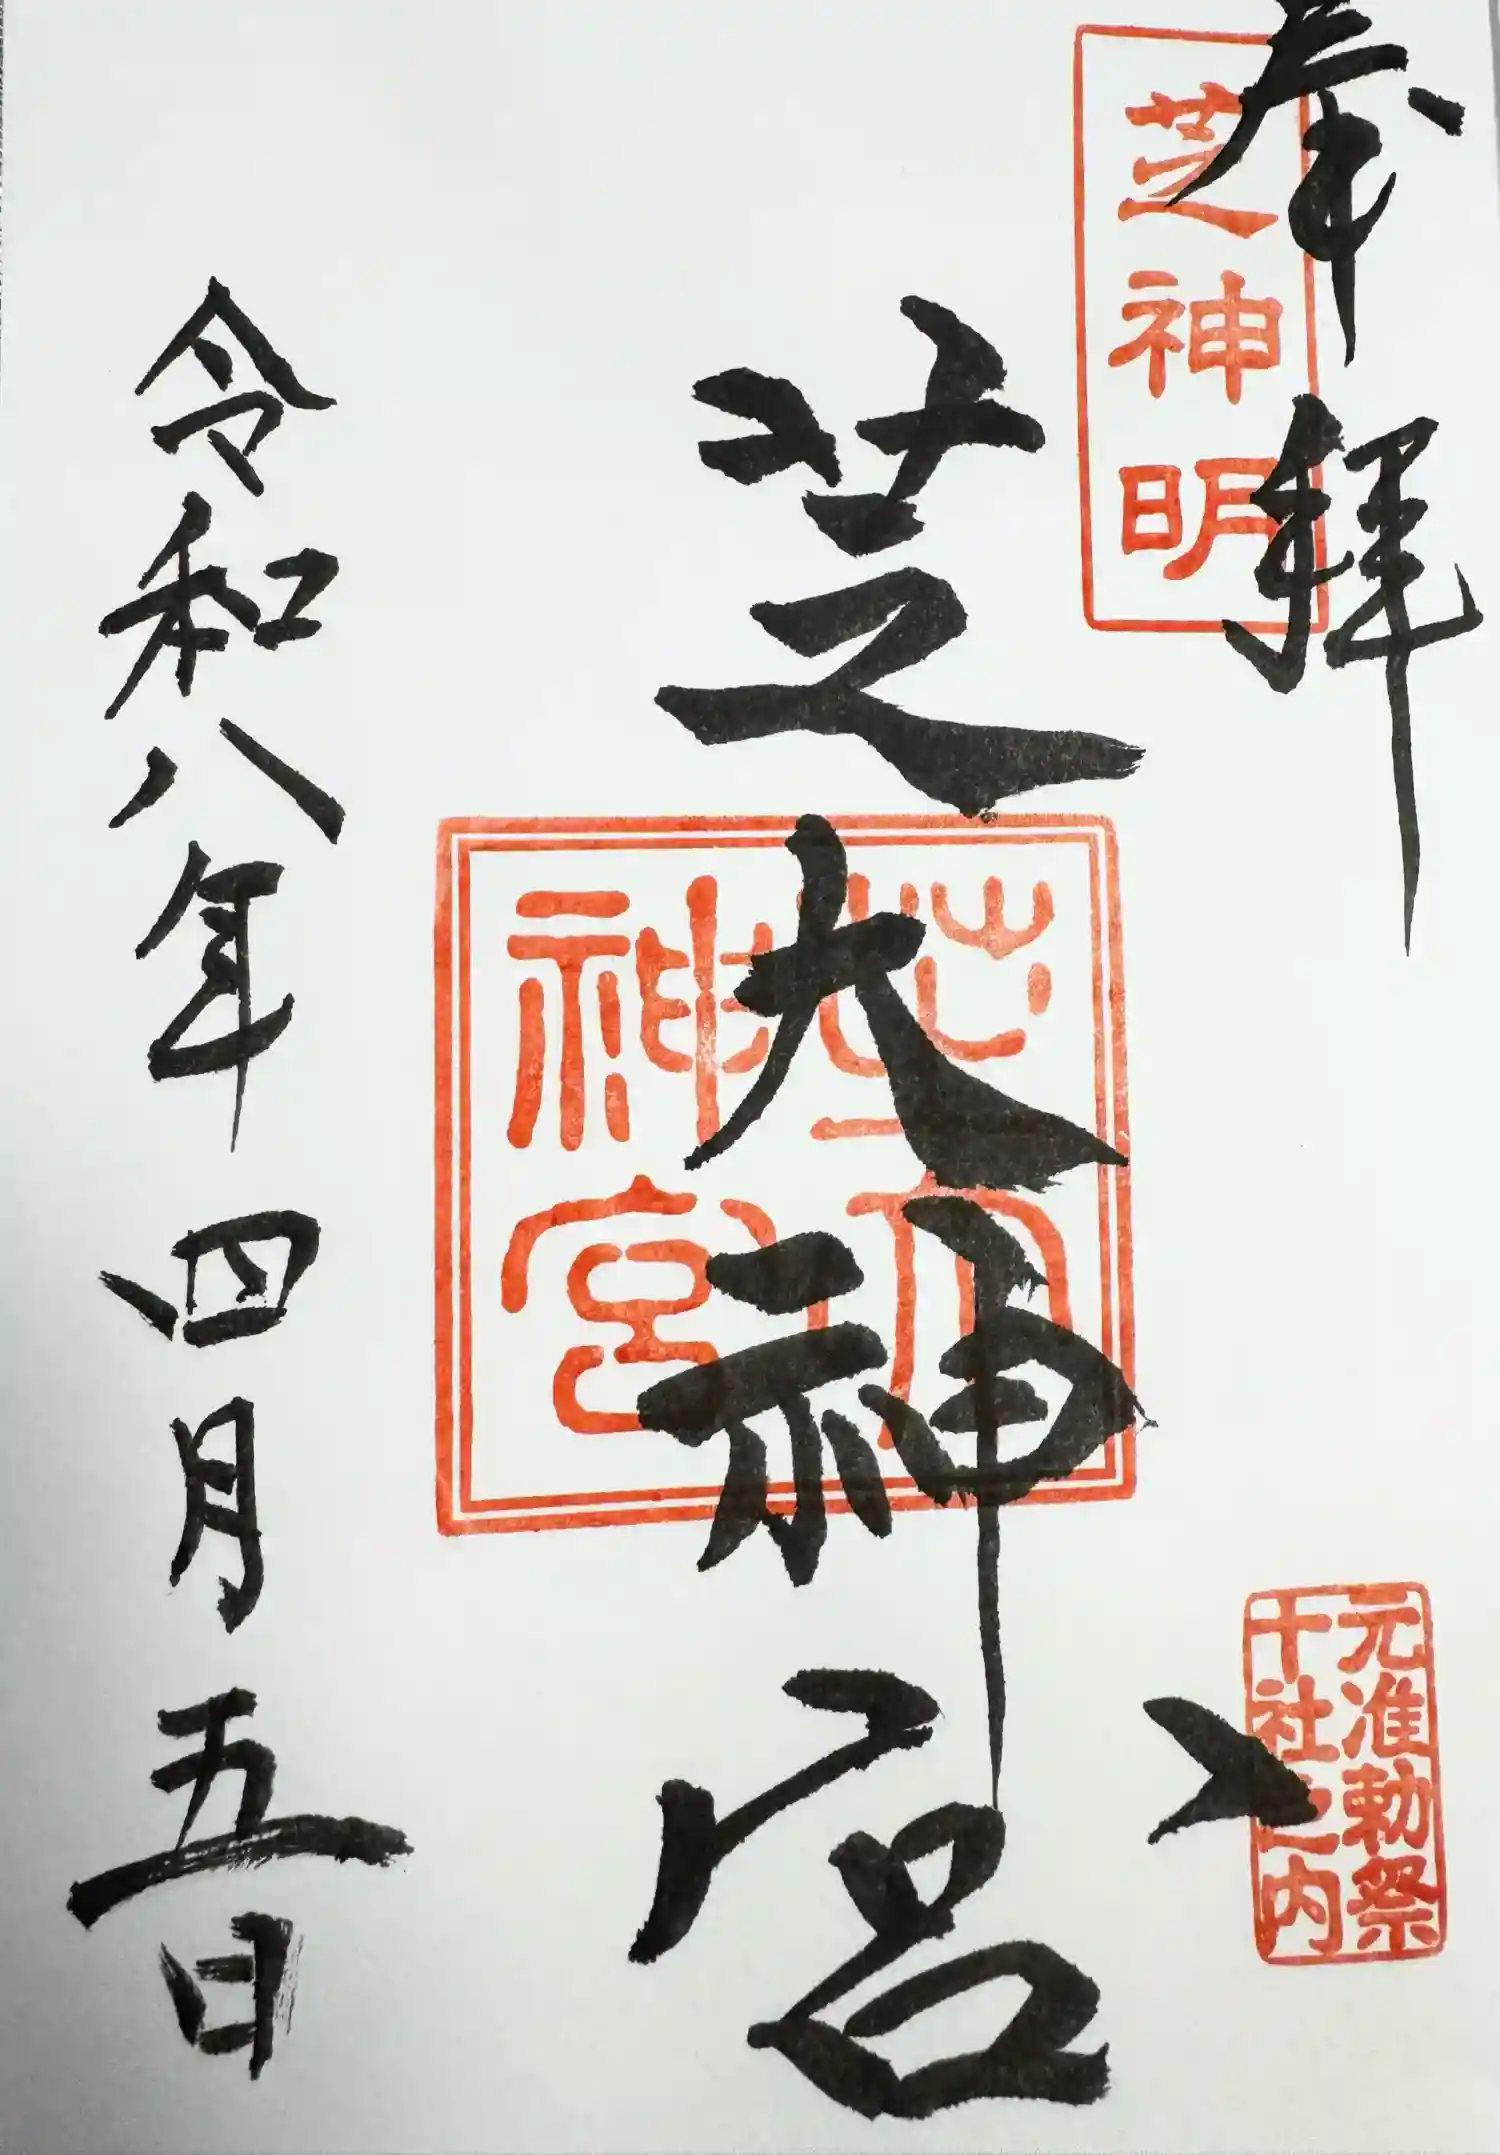 奉拝
芝神明
元准勅祭
十社之内
芝大神宮
芝大神宮
令和八年四月五日